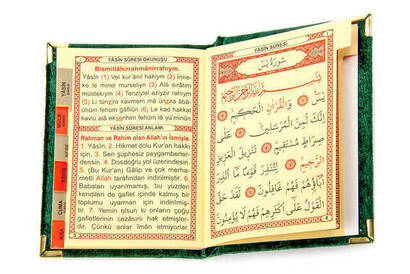 YÂSÎN SÛRESİ OKUNUŞU
Bismillâhirrahmânirrahîym.
Yâsîn (1) Vel kur'ânil hakîym (2) İnne-
ke le minel murseliyn (3) Alâ sırâtim
müstekıym (4) Tenziylel aziyzir rahıym
(5) Li tünzira kavmem mâ ünzira âbâ-
ühüm fehüm ğâfilûn (6) Le kad hakkal
kavlü alâ ekserihim fehüm lâ yü'minûn
YÂSÎN SÛRESİ ANLAMI
Rahman ve Rahim olan Allah'ın İsmiyle.
1. Yâsîn. 2. Hikmet dolu Kur'an hakkı
için, 3. Sen şüphesiz peygamberler-
densin. 4. Dosdoğru yol üzerindesin.
5. (Bu Kur'an) Gâlip ve çok merha-
metli Allah tarafından indirilmiştir. 6.
Babaları uyarılmamış, bu yüzden
kendileri de gaflet içinde kalmış bir
toplumu uyarman için indirilmiş-
dir. 7. Yemin olsun ki onların çoğu
gafletlerinin cezasını hak etmişler-
dir. Çünkü onlar îman etmiyorlar.
YÂSÎN
CUMA
YÂSÎN SÛRESİ
سُورَةُ يٰسٓ
بِسْمِ اللّٰهِ الرَّحْمٰنِ الرَّحِيمِ
يٰسٓ ۞ وَالْقُرْاٰنِ الْحَكِيمِ ۞
اِنَّكَ لَمِنَ الْمُرْسَلِينَ ۞ عَلٰى
صِرَاطٍ مُسْتَقِيمٍ ۞ تَنْزِيلَ الْعَزِيزِ
الرَّحِيمِ ۞ لِتُنْذِرَ قَوْمًا مَٓا اُنْذِرَ
اٰبَٓاؤُهُمْ فَهُمْ غَافِلُونَ ۞ لَقَدْ حَقَّ
الْقَوْلُ عَلٰٓى اَكْثَرِهِمْ فَهُمْ لَا يُؤْمِنُونَ